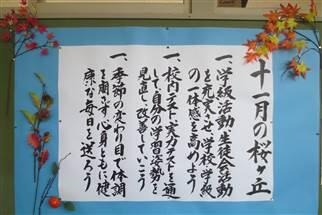 十一月の桜ヶ丘
一、学級活動、生徒会活動
を充実させ、学校、学級
の一体感を高めよう
一、校内テスト、実力テストを通
して、自分の学習姿勢を
見直し、改善していこう
一、季節の変わり目で体調
を崩さず、心身ともに健
康な毎日を送ろう